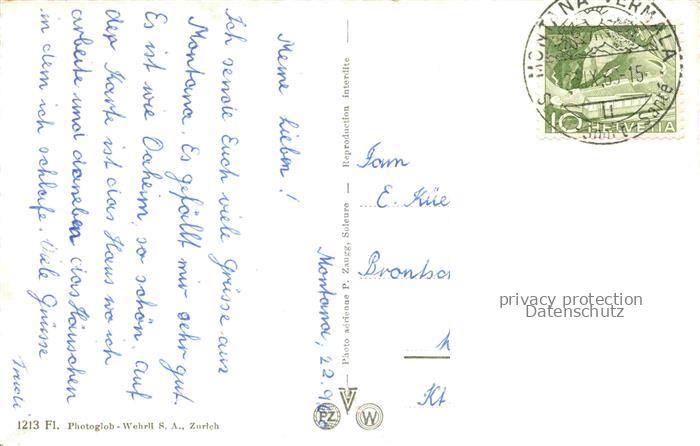 Montana, 22. 9.
Meine Lieben!
Ich sende Euch viele Grüsse aus
Montana. Es gefällt mir sehr gut.
Es ist wie Daheim, so schön. Auf
der Karte ist das Haus wo ich
arbeite und daneben das Häuschen
in dem ich schlafe. Viele Grüsse
Trudi
1213 Fl. Photoglob - Wehrli S. A., Zurich
Photo aérienne P. Zaugg, Soleure — Reproduction interdite —
PZ
W
Fam
E. Küe
Brontsc
Kt
MONTANA-VERMALA
15
II
10 HELVETIA
privacy protection
Datenschutz